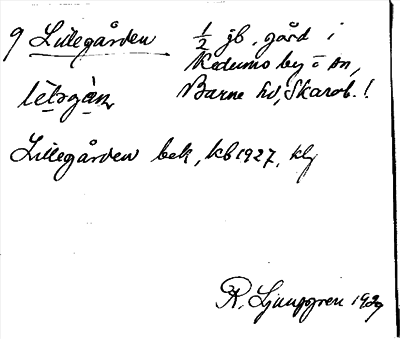 9 Lillegården ½ jb. gård i
Kedums by o sn,
Barne hd, Skarab. l.
Lillegården bek, kb 1927, klj
R. Ljunggren 1927